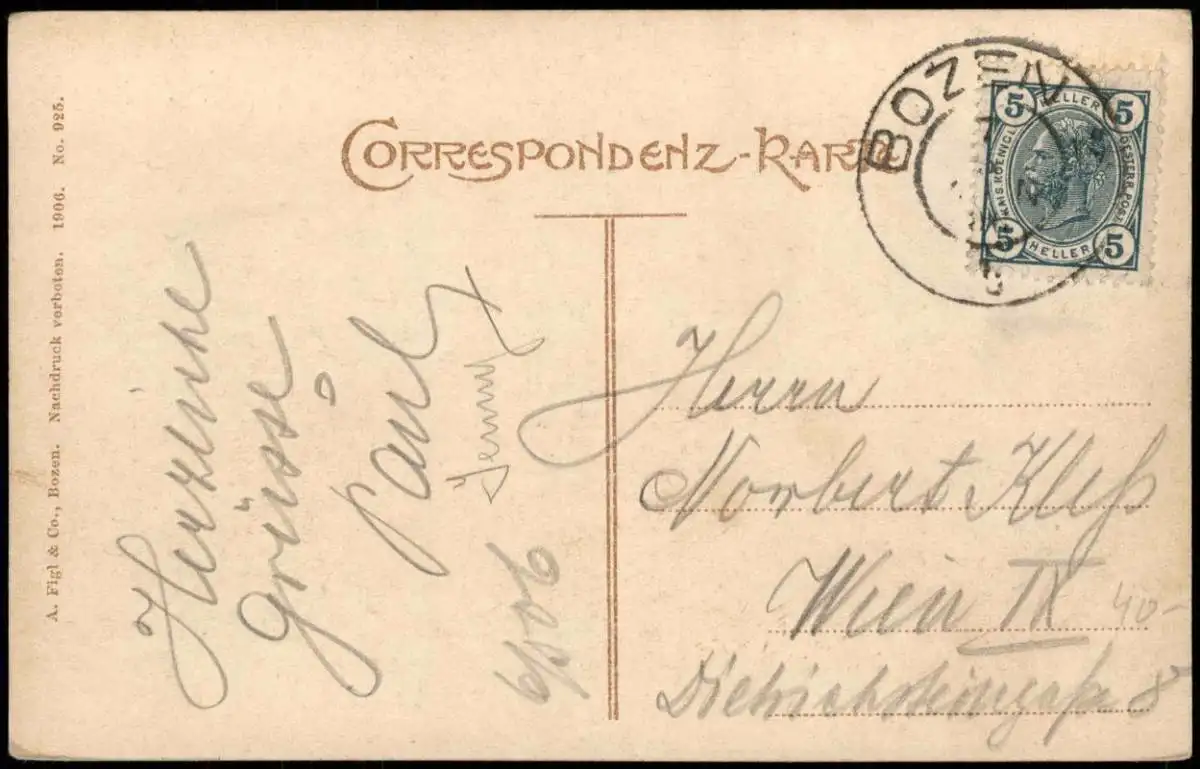 CORRESPONDENZ-KARTE
BOZEN
5 HELLER 5
KAIS. KOENIGL. OESTERR. POST
5 HELLER 5
A. Figl & Co., Bozen. Nachdruck verboten. 1906. No. 925.
Herzliche
Grüsse
Paul
Jenny
Herrn
Norbert Kleß
Wien IX
40-
Dietrichsteingaße 8